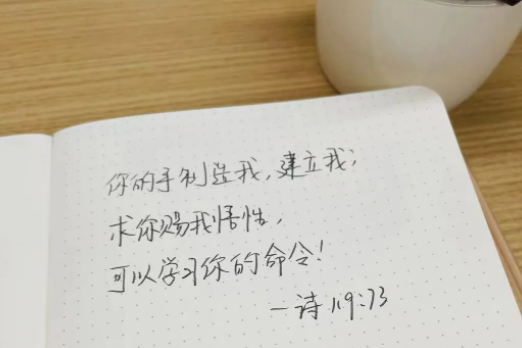 你的手制造我，建立我；
求你赐我悟性，
可以学习你的命令！
—诗119:73